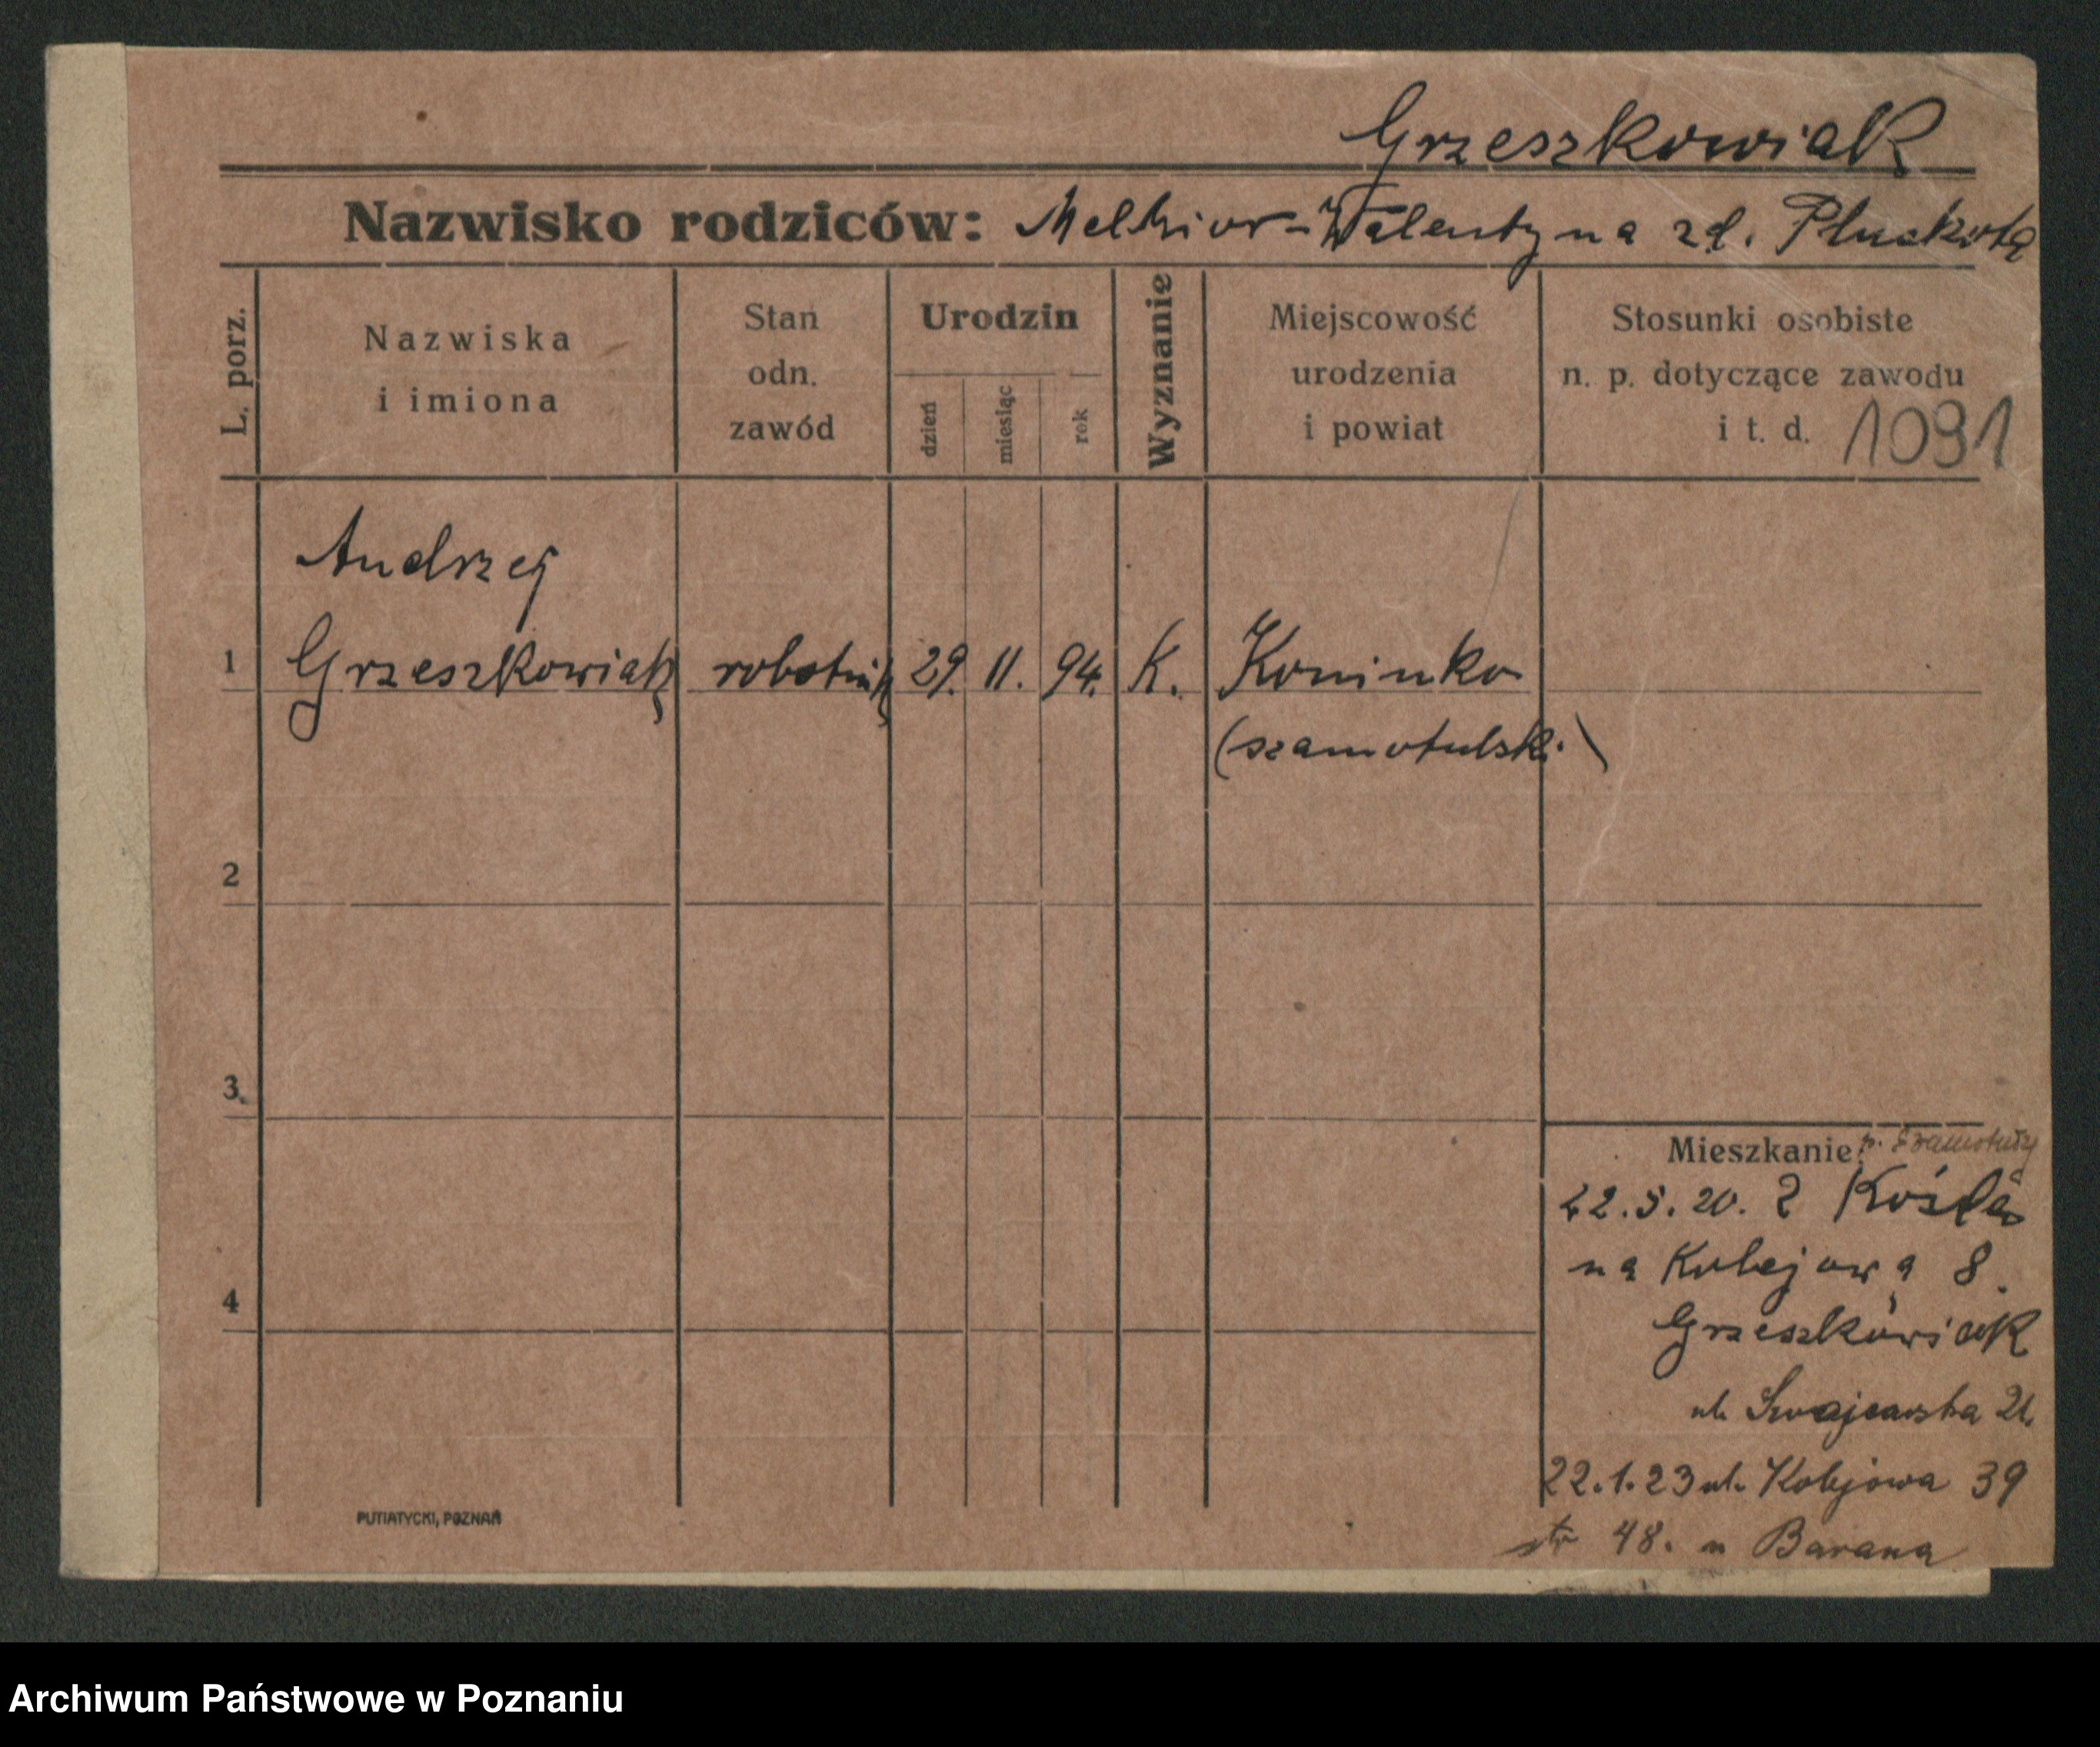 Grzeszkowiak
Nazwisko rodziców: Melchior-Walentyna zd. Pluskota
L. porz.
Nazwiska
i imiona
Stan
odn.
zawód
Urodzin
dzień
miesiąc
rok
Wyznanie
Miejscowość
urodzenia
i powiat
Stosunki osobiste
n. p. dotyczące zawodu
i t. d. 1091
Andrzej
1 Grzeszkowiak robotnik 29. 11. 94. K. Koninko
(szamotulski)
2
3
4
Mieszkanie: p. Szamotuły
22.5.20. z
na Kolejową 8.
Grzeszkowiak
ul. 21.
22.1.23 ul. Kolejowa 39
str 48. u Barana
PUTIATYCKI, POZNAŃ
Archiwum Państwowe w Poznaniu